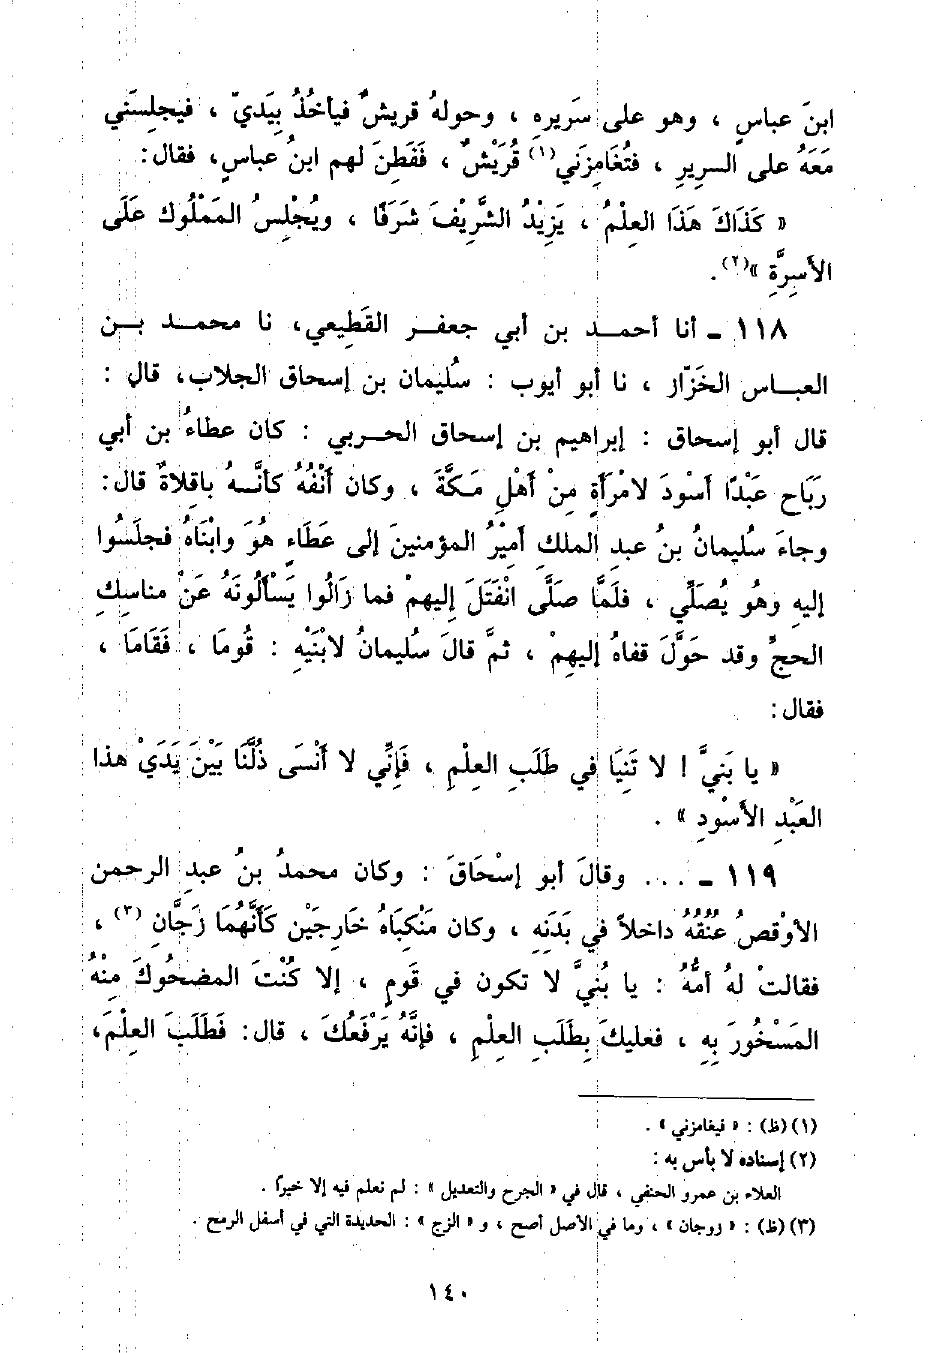 ابنَ عباسٍ ، وهو على سَريرِهِ ، وحولهُ قريشٌ فيأخُذُ بِيَديّ ، فيجلِسَني
مَعَهُ على السريرِ ، فتُغَامِزَني(١) قُرَيْشٌ ، فَفَطِنَ لهم ابنُ عباسٍ، فقال:
« كَذَاكَ هَذَا العِلْمُ ، يَزِيْدُ الشَّرِيْفَ شَرَفًا ، ويُجْلِسُ المَمْلُوكَ عَلَى
الأَسِرَّةِ »(٢).
١١٨ ـ أنا أحمــد بن أبي جعفــر القَطِيعي، نا محمــد بــن
العبــاس الخَزّار ، نا أبو أيوب : سُليمان بن إسحاق الجلاب، قال :
قال أبو إسحاق : إبراهيم بن إسحاق الحــربي : كان عطاءُ بن أبي
رَبَاحٍ عَبْدًا أسْودَ لامْرَأَةٍ مِنْ أَهْلِ مَـكَّةَ ، وكان أَنْفُهُ كأَنَّــهُ باقِلاةٌ قال:
وجاءَ سُليمانُ بنُ عبدِ الملكِ أَمِيْرُ المؤمنينَ إلى عَطَاءٍ هوَ وابْنَاهُ فجلَسُوا
إليهِ وهُو يُصَلِّي ، فلَمَّا صلَّى انْفَتَلَ إليهمْ فما زَالُوا يَسْأَلُونَهُ عَنْ مناسِكِ
الحجِّ وقد حَوَّلَ قفاهُ إليهِمْ ، ثمَّ قالَ سُليمانُ لابْنَيْهِ : قُومَا ، فَقَامَا ،
فقال:
« يا بَنيَّ ! لا تَنِيَا في طَلَبِ العِلْمِ ، فَإِنِّي لا أَنْسَى ذُلَّنَا بَيْنَ يَدَيْ هذا
العَبْدِ الأَسْودِ » .
١١٩ ـ ... وقالَ أبو إسْحَاقَ : وكان محمدُ بنُ عبدِ الرحمن
الأوْقصُ عُنُقُهُ داخلاً في بَدَنِهِ ، وكان مَنْكِبَاهُ خَارِجَيْنِ كَأَنَّهُمَا زَجَّانِ (٣) ،
فقالتْ لهُ أمُّهُ : يا بُنيَّ لا تكون في قَومٍ ، إلا كُنْتَ المضحُوكَ مِنْهُ
المَسْخُورَ بِهِ ، فعليكَ بِطَلَبِ العِلْمِ ، فإنَّهُ يَرْفَعُكَ ، قال: فَطَلَبَ العِلْمَ،
(١) (ظ) : « فيغامزني » .
(٢) إسناده لا بأس به :
العلاء بن عمرو الحنفي ، قال في « الجرح والتعديل » : لم نعلم فيه إلا خيرًا .
(٣) (ظ) : « زوجان » ، وما في الأصل أصح ، و « الزج » : الحديدة التي في أسفل الرمح .
١٤٠